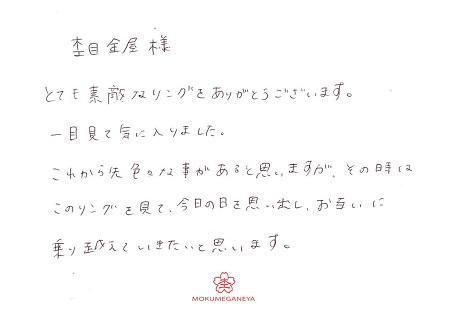 杢目金屋 様
とても素敵なリングをありがとうございます。
一目見て気に入りました。
これから先色々な事があると思いますが、その時は
このリングを見て、今日の日を思い出し、お互いに
乗り越えていきたいと思います。
杢
MOKUMEGANEYA